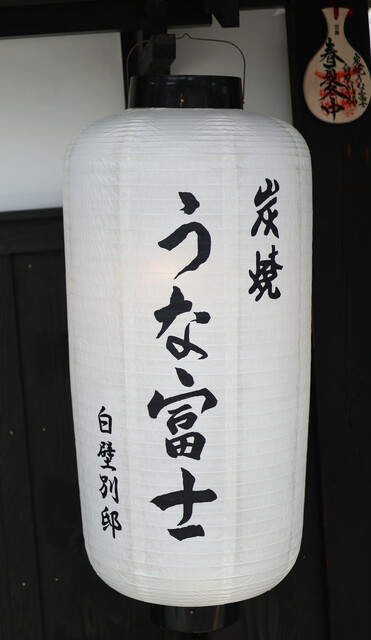 炭焼
うな富士
白壁別邸
春夏冬中